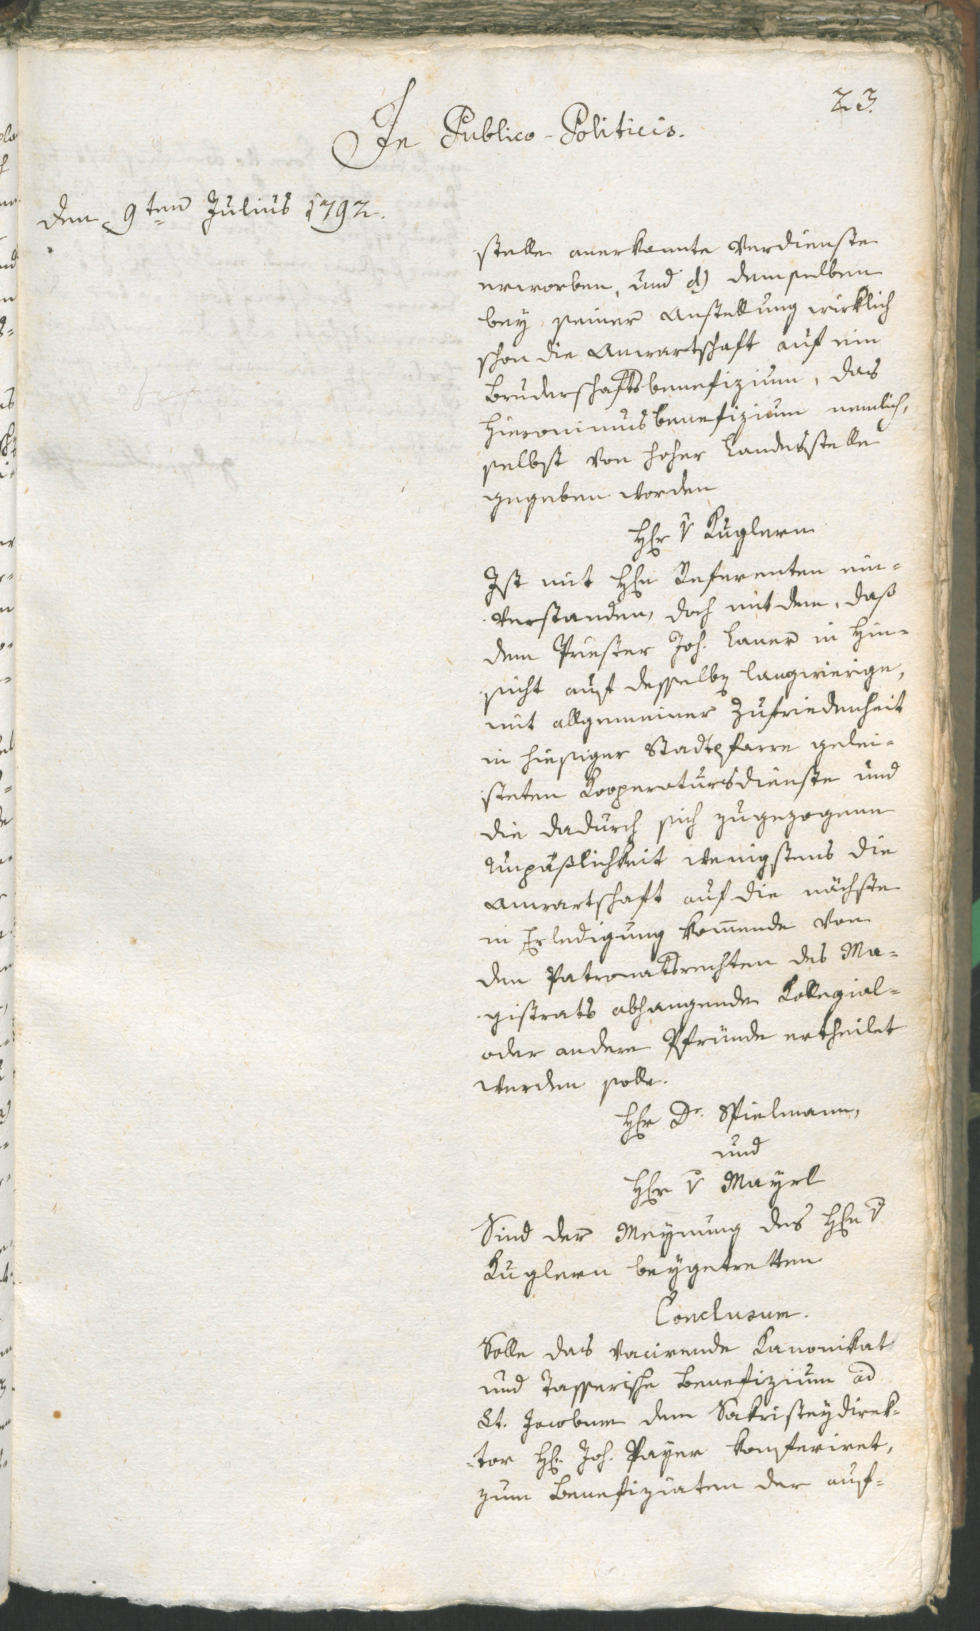 23.
In Publico-Politicis.
den 9ten Julius 1792.
stelle anerkannte Verdienste
erworben, und d) demselben
bey seiner Anstellung wirklich
schon die Anwartschaft auf ein
Bruderschaftsbenefizium, das
Hieronimusbenefizium nemlich,
selbst von hoher Landesstelle
gegeben worden
Hr v Kuglern
Ist mit Hn Referenten ein-
verstanden, doch mit dem, daß
dem Priester Joh. Lauer in Hin-
sicht auf desselben langwierige,
mit allgemeiner Zufriedenheit
in hiesiger Stadtpfarre gelei-
steten Kooperatursdienste und
die dadurch sich zugezogenen
Unpäßlichkeit wenigstens die
Anwartschaft auf die nächste
in Erledigung kommende von
den Patronatsrechten des Ma-
gistrats abhangende Kollegial-
oder andere Pfründe ertheilet
werden solle.
Hr Dr. Spielmann,
und
Hr v Mayrl
Sind der Meynung des Hn v
Kuglern beygetretten
Conclusum.
Solle das vacirende Kanonikat
und Tasserische Benefizium ad
St. Jacobum dem Sakristeydirek-
tor H. Joh. Payer konferiret,
zum Benefiziaten der auf-